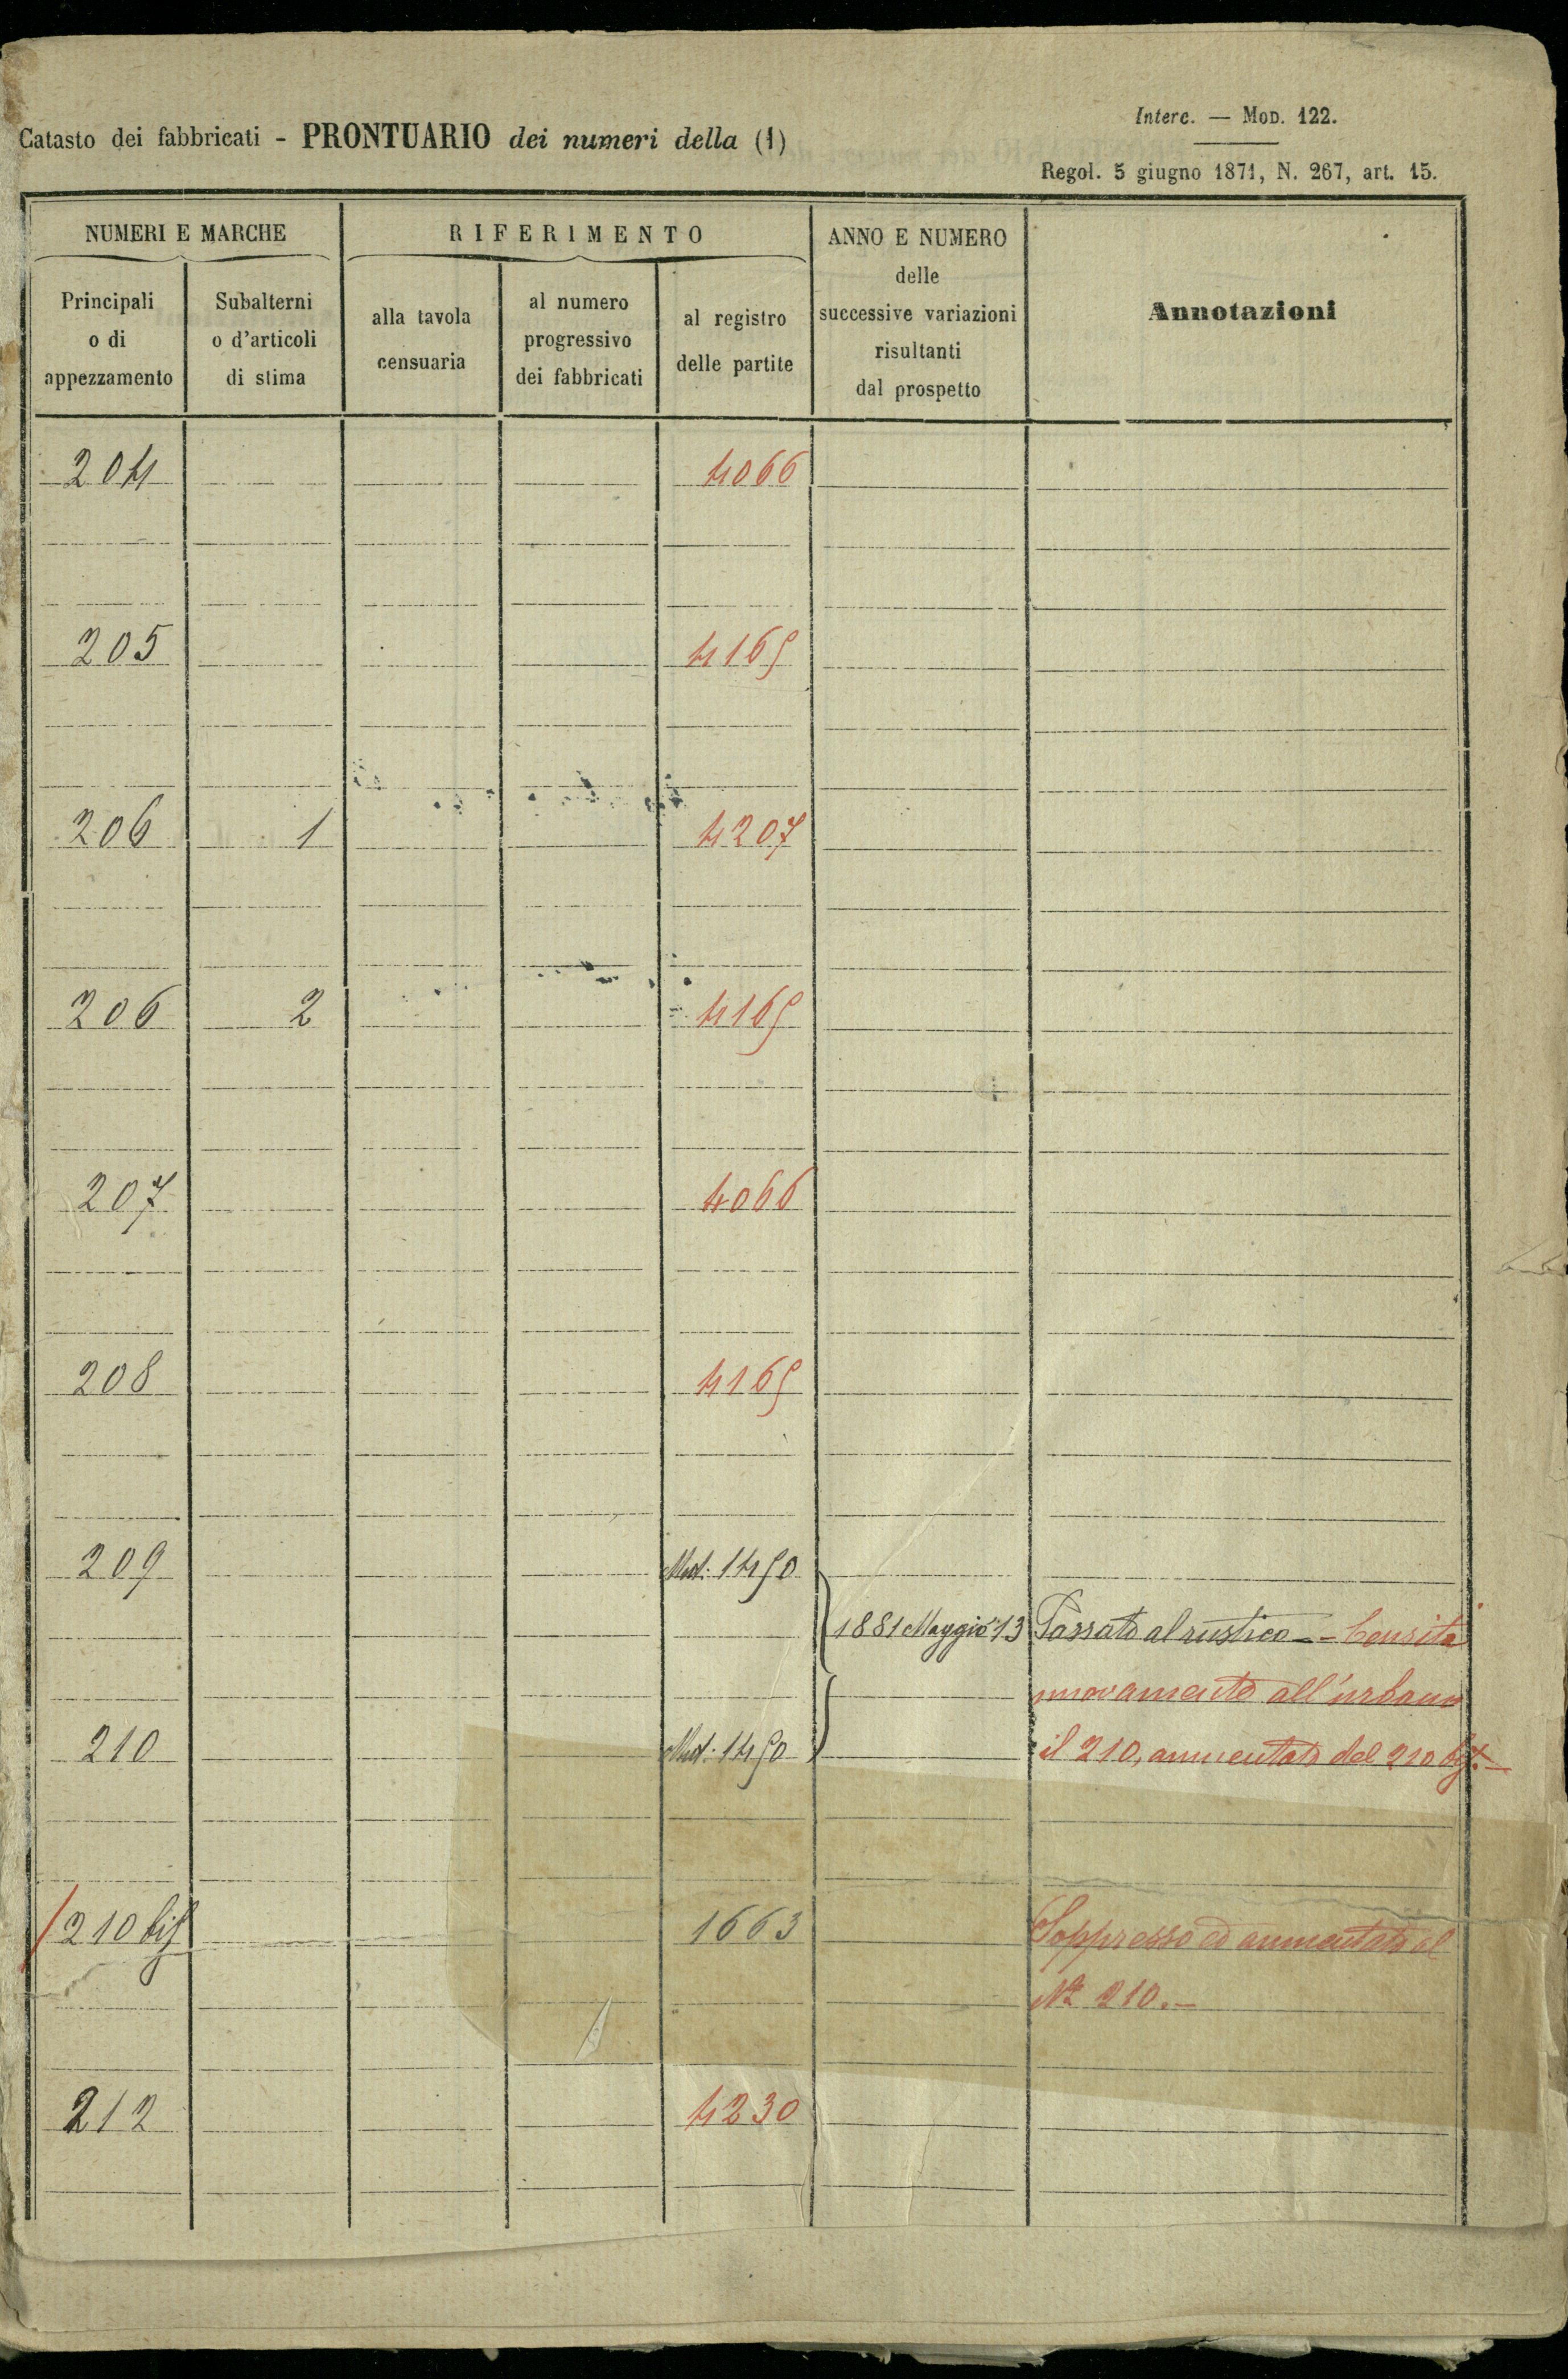 Interc. — Mod. 122.
Catasto dei fabbricati - PRONTUARIO dei numeri della (1)
Regol. 5 giugno 1871, N. 267, art. 15.
NUMERI E MARCHE RIFERIMENTO ANNO E NUMERO delle successive variazioni risultanti dal prospetto Annotazioni
Principali o di appezzamento Subalterni o d'articoli di stima alla tavola censuaria al numero progressivo dei fabbricati al registro delle partite
204 4066
205 4165
206 1 4207
206 2 4165
207 4066
208 4165
209 Mod. 1450
1881 Maggio 13 Passato al rustico - - Censita
nuovamente all'urbano
210 Mod. 1450 il 210, aumentato del 210 bis. -
210 bis 1663 Soppresso ed aumentato al
N.° 210. -
212 4230